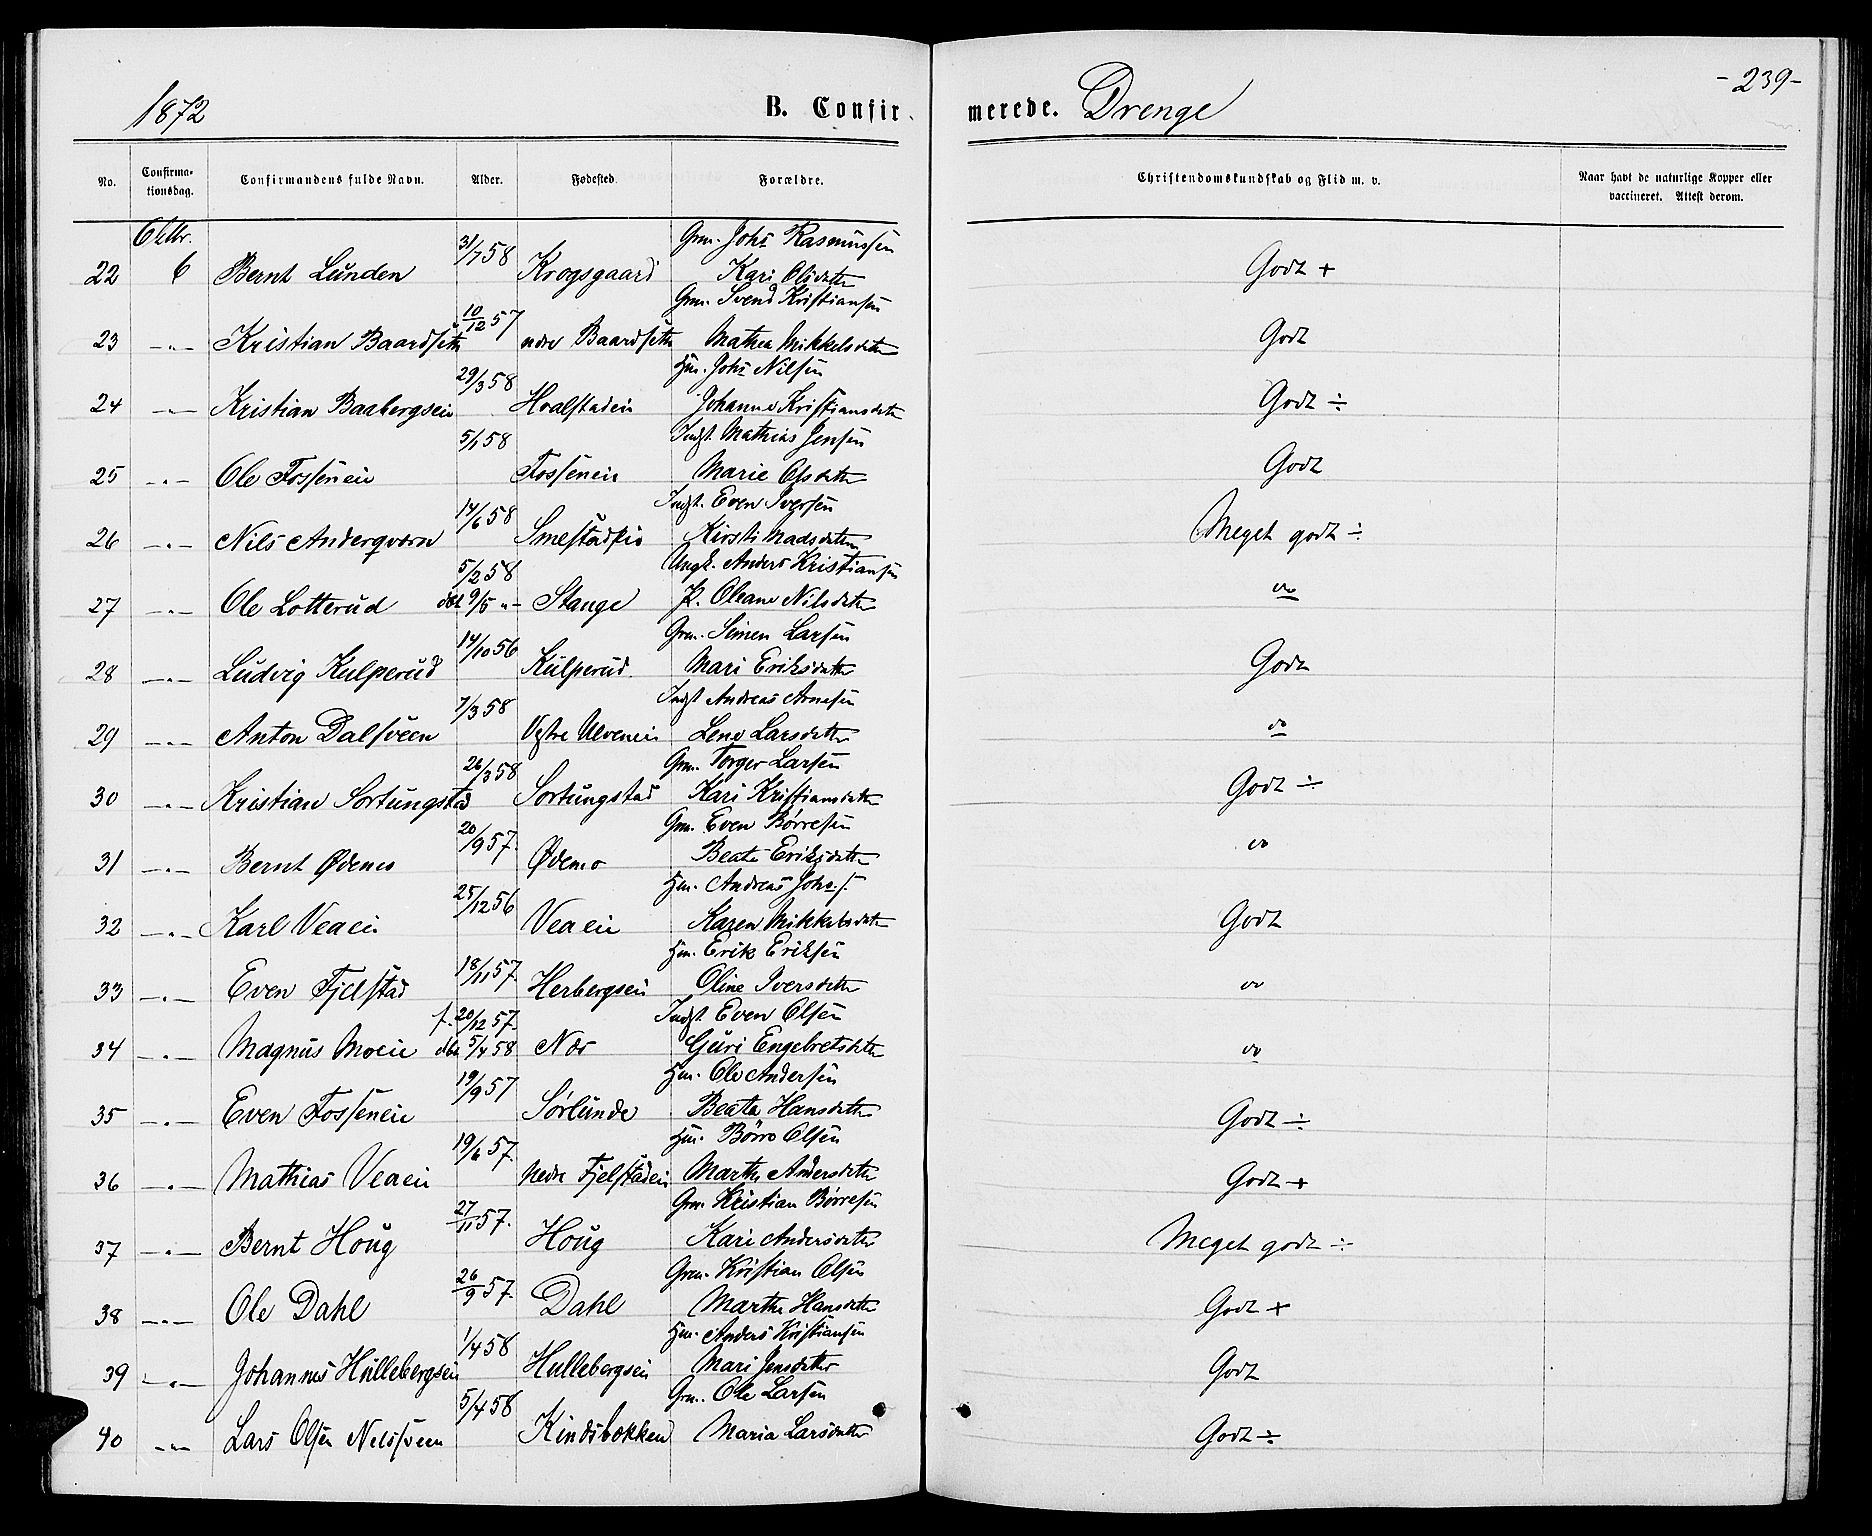 1872 B. Confirmerede. Drenge -239-
No. Confirmationsdag. Confirmandens fulde Navn. Alder. Fødested. Forældre. Christendomskundskab og Flid m. v. Naar havt de naturlige Kopper eller vaccineret. Attest derom.
Octbr. 31/7 58 Grm. Johs Rasmussen
22 6 Bernt Lunden Krogsgaard Kari Olsdatter Godt +
10/12 57 Grm. Svend Kristiansen
23 -"- Kristian Baardseth nedre Baardseth Mathea Mikkelsdatter Godt
29/3 58 Hm. Johs Nilsen
24 -"- Kristian Baabergseie Hoalstadeie Johanne Kristiansdatter Godt ÷
5/1 58 Indst. Mathias Jensen
25 -"- Ole Fosseneie Fosseneie Marie Olsdatter Godt
14/6 58 Indst. Even Iversen
26 -"- Nils Anderqværn Smestadeie Kirsti Madsdatter Meget godt ÷
5/2 58 Ungk. Anders Kristiansen
27 -"- Ole Lotterud døbt 9/5 "- Stange P. Oleane Nilsdatter do
14/10 56 Grm. Simen Larsen
28 -"- Ludvig Kulperud Kulperud Mari Eriksdatter Godt
7/3 58 Indst Andreas Arnesen
29 -"- Anton Dalsveen Vestre Ulveneie Lene Larsdatter do
26/3 58 Grm. Torger Larsen
30 -"- Kristian Sortungstad Sortungstad Kari Kristiansdatter Godt ÷
20/9 57. Grm. Even Børresen
31 -"- Bernt Ødemo Ødemo Beate Eriksdatter do
25/12 56 Hm. Andreas Johs.s.
32 -"- Karl Veaeie Veaeie Karen Mikkelsdatter Godt
18/11 57. Hm. Erik Eriksen
33 -"- Even Fjelstad Herbergseie Oline Iversdatter do
f. 20/12 57. Indst. Even Olsen
34 -"- Magnus Moeie dbt 5/4 58 Nær Guri Engebretsdatter do
19/9 57 Hm. Ole Andersen
35 -"- Even Fosseneie Sørlunde Beata Hansdatter Godt ÷
19/6 57. Hm. Børre Olsen
36 -"- Mathias Veaeie Nedre Fjelstadeie Marthe Andersdatter Godt +
27/11 57. Grm. Kristian Børresen
37 -"- Bernt Houg Houg Kari Andersdatter Meget godt ÷
26/9 57. Grm. Kristian Olsen
38 -"- Ole Dahl Dahl Marthe Hansdatter Godt +
1/4 58 Hm. Anders Kristiansen
39 -"- Johannes Hullebergseie Hullebergseie Mari Jensdatter Godt
5/4 58 Grm. Ole Larsen
40 -"- Lars Olsen Nilssveen Kindsbækken Maria Larsdatter Godt ÷